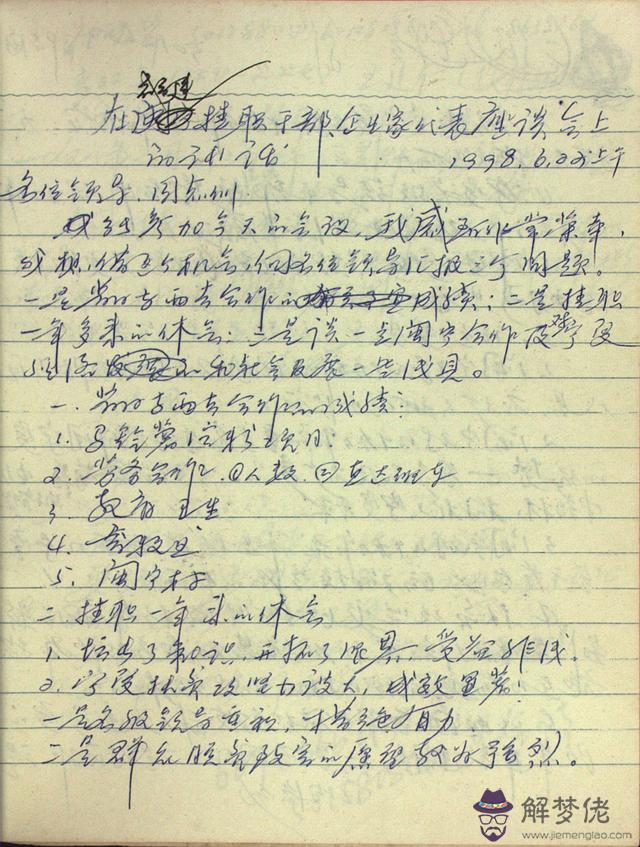 在挂职干部、企业家代表座谈会上
的 1998.6.22上午
各位领导、同志们
我能参加今天的会议,我感到非常荣幸,
我想借这个机会,向各位领导汇报三个问题。
一是 合作的 成绩;二是挂职
一年多来的体会;三是谈一点闽宁合作及对宁夏
经济 和社会发展一些浅见。
一、 合作的成绩:
1.
2. 劳务合作 ①人数 ②直达班车
3. 教育卫生
4.
5. 闽宁村
二、挂职一年来的体会
1. 增长了知识,开拓了眼界,受益非浅。
2. 宁夏扶贫攻坚力度大,成效显著:
一是各级领导重视,措施有力
二是群众脱贫致富的愿望 强烈。
解梦佬
www.jiemenglao.com